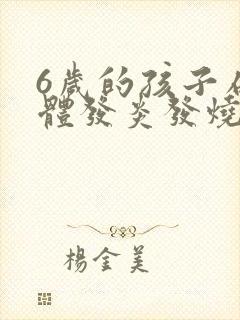 6歲的孩子
體發炎發燒
楊金美